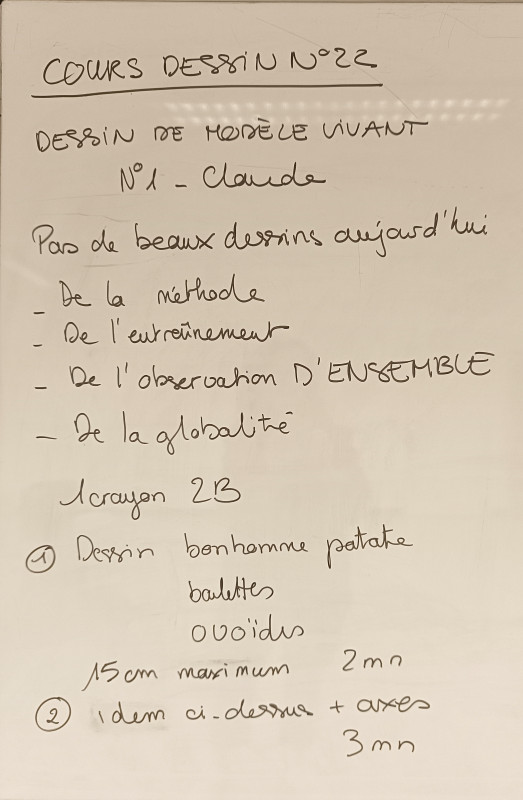 COURS DESSIN N°22
DESSIN DE MODÈLE VIVANT
N°1 - Claude
Pas de beaux dessins aujourd'hui
- De la méthode
- De l'entraînement
- De l'observation D'ENSEMBLE
- De la globalité
1 crayon 2B
① Dessin bonhomme patate
boulettes
ovoïdes
15cm maximum 2mn
② idem ci-dessus + axes
3mn